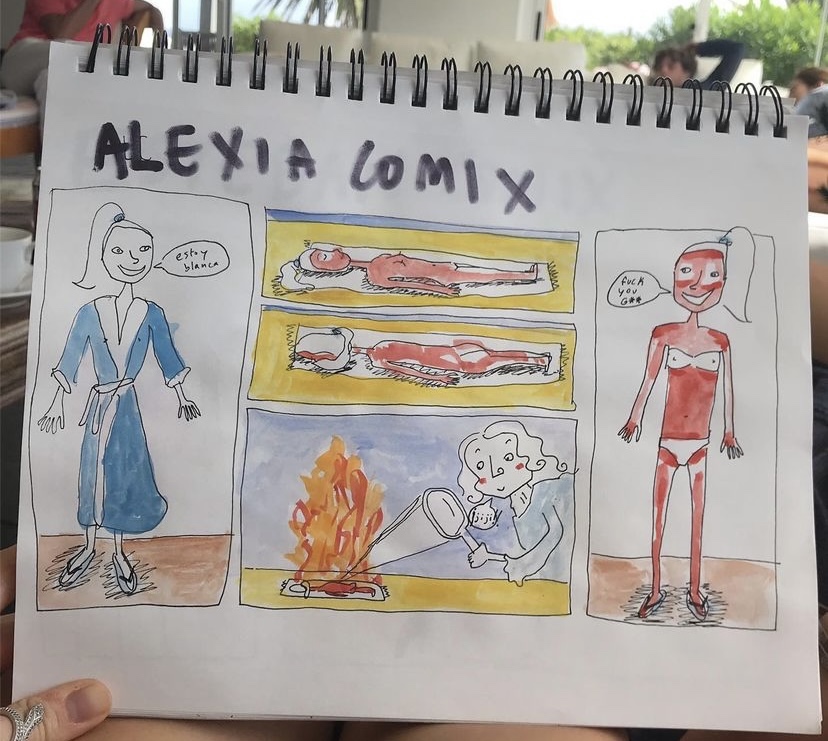 ALEXIA COMIX
estoy
blanca
jiji
fuck
you
G**